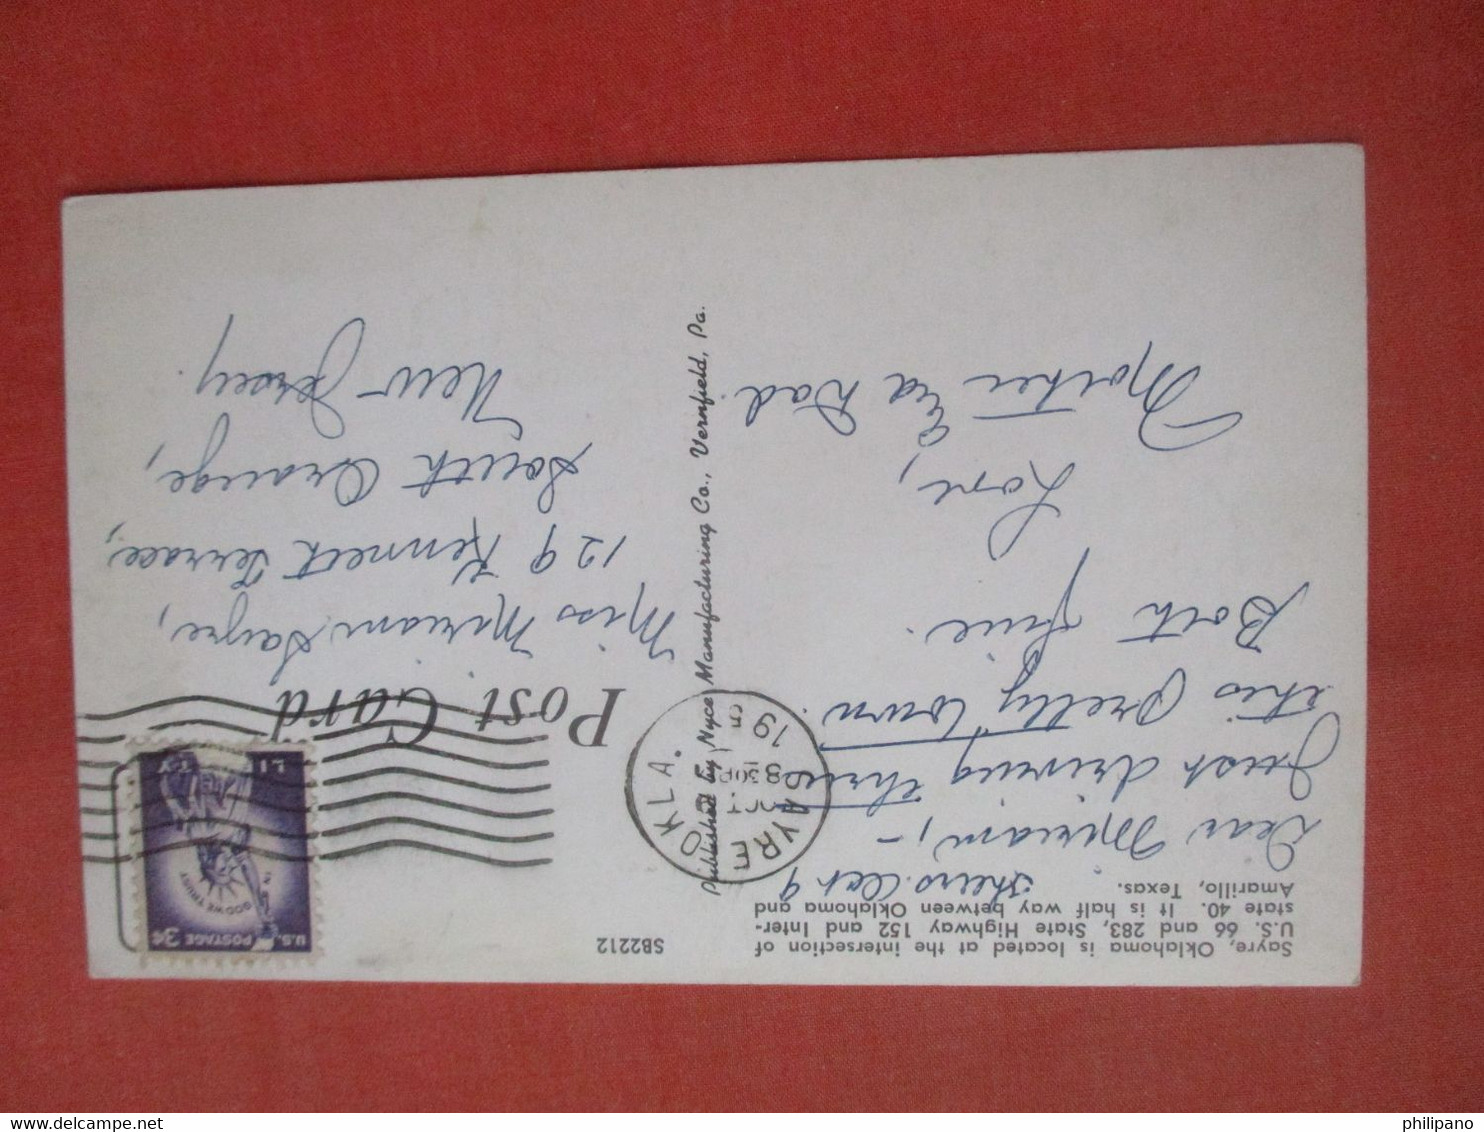 Sayre, Oklahoma is located at the intersection of
U.S. 66 and 283, State Highway 152 and Inter-
state 40. It is half way between Oklahoma and
Amarillo, Texas.
SB2212
Thurs. Oct 9
Dear Miriam, -
Just driving thru
this pretty town.
Both fine.
Love,
Mother and Dad.
Published by Nyce Manufacturing Co., Vernfield, Pa.
Post Card
SAYRE OKLA.
OCT
8 30P
19
U.S. POSTAGE 3¢
IN GOD WE TRUST
LIBERTY
Miss Miriam Sayre,
129 Kennett Terrace,
South Orange,
New Jersey.
philipano
delcampe.net